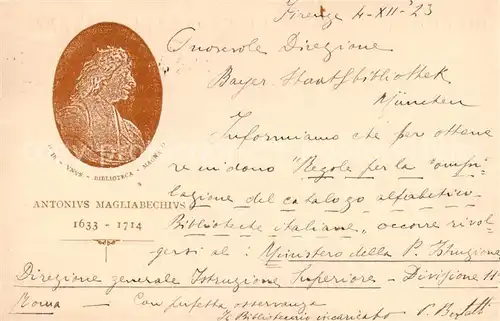 Firenze 4-XII-'23
Onorevole Direzione
Bayer Staatsbibliothek
München
Informiamo che per ottene
re in dono "Regole per la compi-
lazione del catalogo alfabetico
Biblioteche italiane", occorre rivol-
gersi al: Ministero della P. Istruzione
Direzione generale Istruzione Superiore - Divisione II
Roma — Con perfetta osservanza
Il Bibliotecario incaricato
IS - VNVS - BIBLIOTHECA - MAGNA
ANTONIVS MAGLIABECHIVS
1633 - 1714